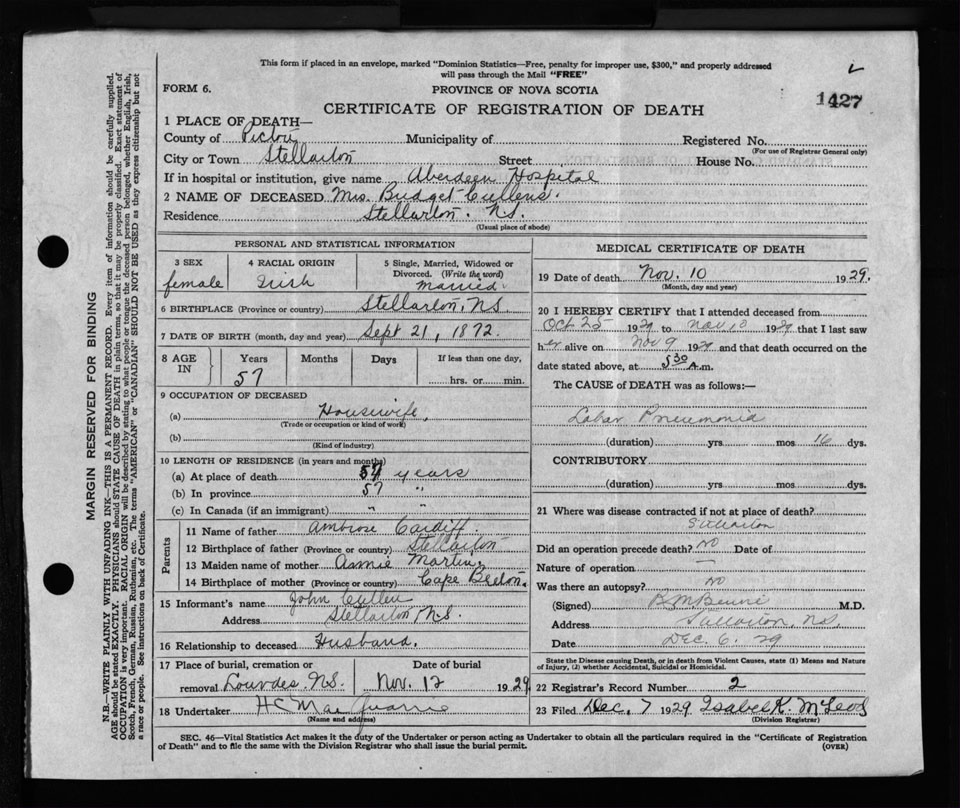 This form if placed in an envelope, marked "Dominion Statistics—Free, penalty for improper use, $300," and properly addressed
will pass through the Mail "FREE"
FORM 6.
PROVINCE OF NOVA SCOTIA
1427
CERTIFICATE OF REGISTRATION OF DEATH
1 PLACE OF DEATH—
County of Pictou Municipality of Registered No.
(For use of Registrar General only)
City or Town Stellarton Street House No.
If in hospital or institution, give name Aberdeen Hospital
2 NAME OF DECEASED Mrs. Budget Cullens.
Residence Stellarton. N.S.
(Usual place of abode)
MARGIN RESERVED FOR BINDING
N.B.—WRITE PLAINLY WITH UNFADING INK—THIS IS A PERMANENT RECORD. Every item of information should be carefully supplied.
AGE should be stated EXACTLY. PHYSICIANS should STATE CAUSE OF DEATH in plain terms, so that it may be properly classified. Exact statement of
OCCUPATION is very important. RACIAL ORIGIN will be described by stating to what people or tongue the deceased person belonged, whether English, Irish,
Scotch, French, German, Russian, Ruthenian, etc. The terms "AMERICAN" or "CANADIAN" SHOULD NOT BE USED as they express citizenship but not
a race or people. See instructions on back of Certificate.
PERSONAL AND STATISTICAL INFORMATION
3 SEX
female
4 RACIAL ORIGIN
Irish
5 Single, Married, Widowed or
Divorced. (Write the word)
Married.
6 BIRTHPLACE (Province or country) Stellarton, N.S.
7 DATE OF BIRTH (month, day and year) Sept 21, 1872.
8 AGE
IN
Years
57
Months
Days
If less than one day,
hrs. or min.
9 OCCUPATION OF DECEASED
(a) Housewife,
(Trade or occupation or kind of work)
(b)
(Kind of industry)
10 LENGTH OF RESIDENCE (in years and months)
(a) At place of death 57 years
(b) In province 57 "
(c) In Canada (if an immigrant) " "
Parents
11 Name of father Ambrose Cardiff.
12 Birthplace of father (Province or country) Stellarton
13 Maiden name of mother Annie Martin,
14 Birthplace of mother (Province or country) Cape Breton.
15 Informant's name John Cullen
Address Stellarton, N.S.
16 Relationship to deceased Husband.
17 Place of burial, cremation or Date of burial
removal Lourdes. N.S. Nov. 12 1929
18 Undertaker H C Mac
(Name and address)
MEDICAL CERTIFICATE OF DEATH
19 Date of death Nov. 10 1929.
(Month, day and year)
20 I HEREBY CERTIFY that I attended deceased from
Oct 25 1929 to Nov 10 1929 that I last saw
her alive on Nov 9 1929 and that death occurred on the
date stated above, at 5 30 A.m.
The CAUSE of DEATH was as follows:—
Lobar Pneumonia
(duration) yrs mos 16 dys.
CONTRIBUTORY
(duration) yrs. mos dys.
21 Where was disease contracted if not at place of death?
Stellarton
Did an operation precede death? No Date of
Nature of operation —
Was there an autopsy? No
(Signed) M.D.
Address Stellarton, N.S.
Date Dec. 6. 29
State the Disease causing Death, or in death from Violent Causes, state (1) Means and Nature
of Injury, (2) whether Accidental, Suicidal or Homicidal.
22 Registrar's Record Number 2
23 Filed Dec. 7 1929 Isabel K. McLeod
(Division Registrar)
SEC. 46—Vital Statistics Act makes it the duty of the Undertaker or person acting as Undertaker to obtain all the particulars required in the "Certificate of Registration
of Death" and to file the same with the Division Registrar who shall issue the burial permit.
(OVER)